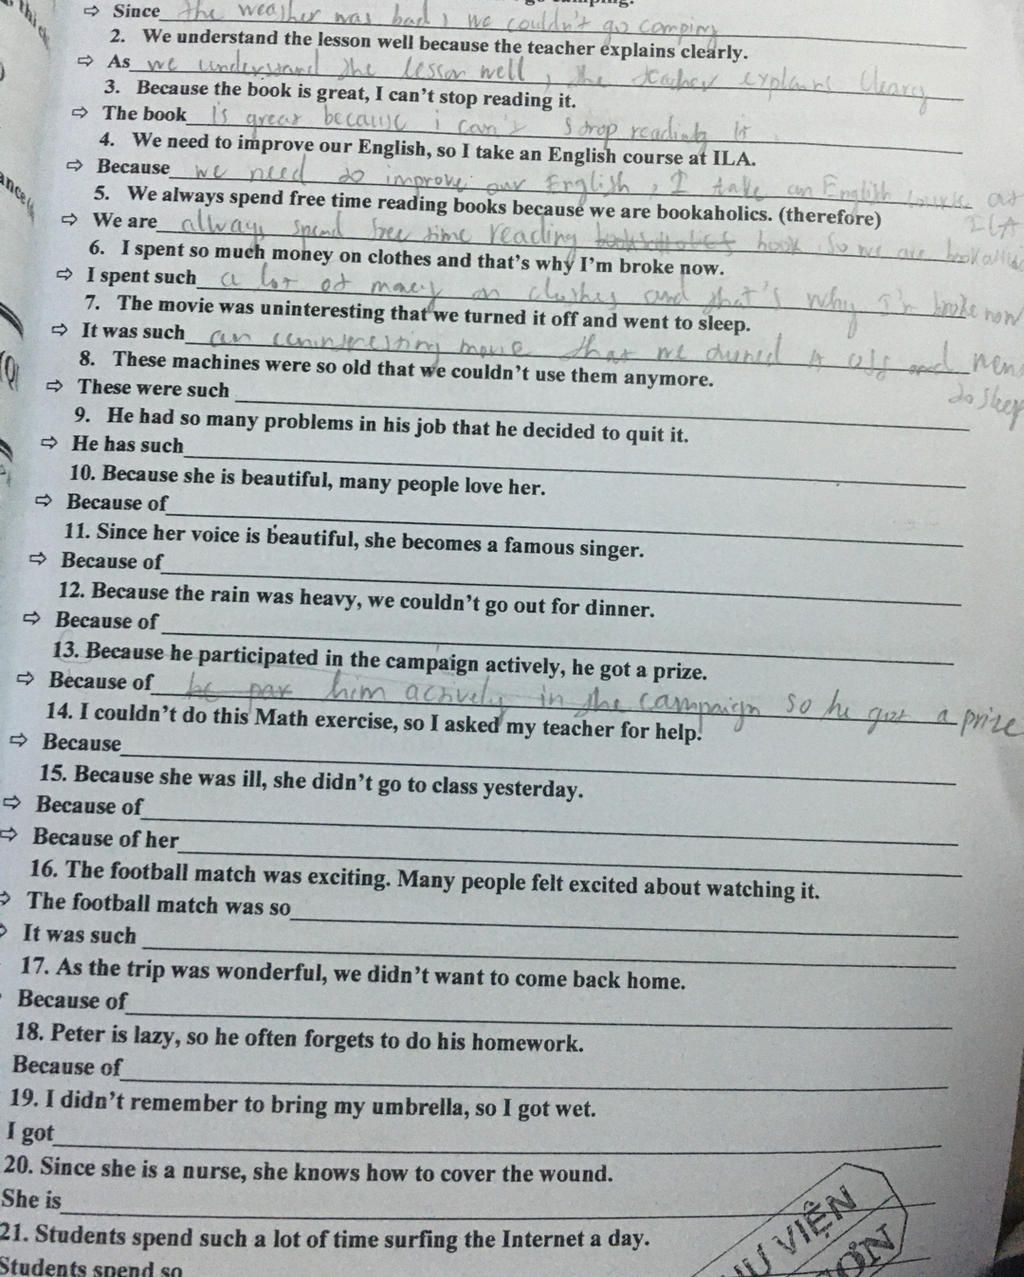 ⇨ Since the weather was bad, we couldn't go camping
2. We understand the lesson well because the teacher explains clearly.
⇨ As we understand the lesson well, the teacher explains clearly
3. Because the book is great, I can't stop reading it.
⇨ The book is great because i can't stop reading it.
4. We need to improve our English, so I take an English course at ILA.
⇨ Because we need to improve our English, I take an English course at ILA
5. We always spend free time reading books because we are bookaholics. (therefore)
⇨ We are always spend free time reading book so we are
6. I spent so much money on clothes and that's why I'm broke now.
⇨ I spent such a lot of money on clothes and that's why I'm broke now
7. The movie was uninteresting that we turned it off and went to sleep.
⇨ It was such an uninteresting movie that we turned it off and went to sleep
8. These machines were so old that we couldn't use them anymore.
⇨ These were such
9. He had so many problems in his job that he decided to quit it.
⇨ He has such
10. Because she is beautiful, many people love her.
⇨ Because of
11. Since her voice is beautiful, she becomes a famous singer.
⇨ Because of
12. Because the rain was heavy, we couldn't go out for dinner.
⇨ Because of
13. Because he participated in the campaign actively, he got a prize.
⇨ Because of he par him actively in the campaign so he got a prize
14. I couldn't do this Math exercise, so I asked my teacher for help.
⇨ Because
15. Because she was ill, she didn't go to class yesterday.
⇨ Because of
⇨ Because of her
16. The football match was exciting. Many people felt excited about watching it.
⇨ The football match was so
⇨ It was such
17. As the trip was wonderful, we didn't want to come back home.
Because of
18. Peter is lazy, so he often forgets to do his homework.
Because of
19. I didn't remember to bring my umbrella, so I got wet.
I got
20. Since she is a nurse, she knows how to cover the wound.
She is
21. Students spend such a lot of time surfing the Internet a day.
Students spend so
VIỆN